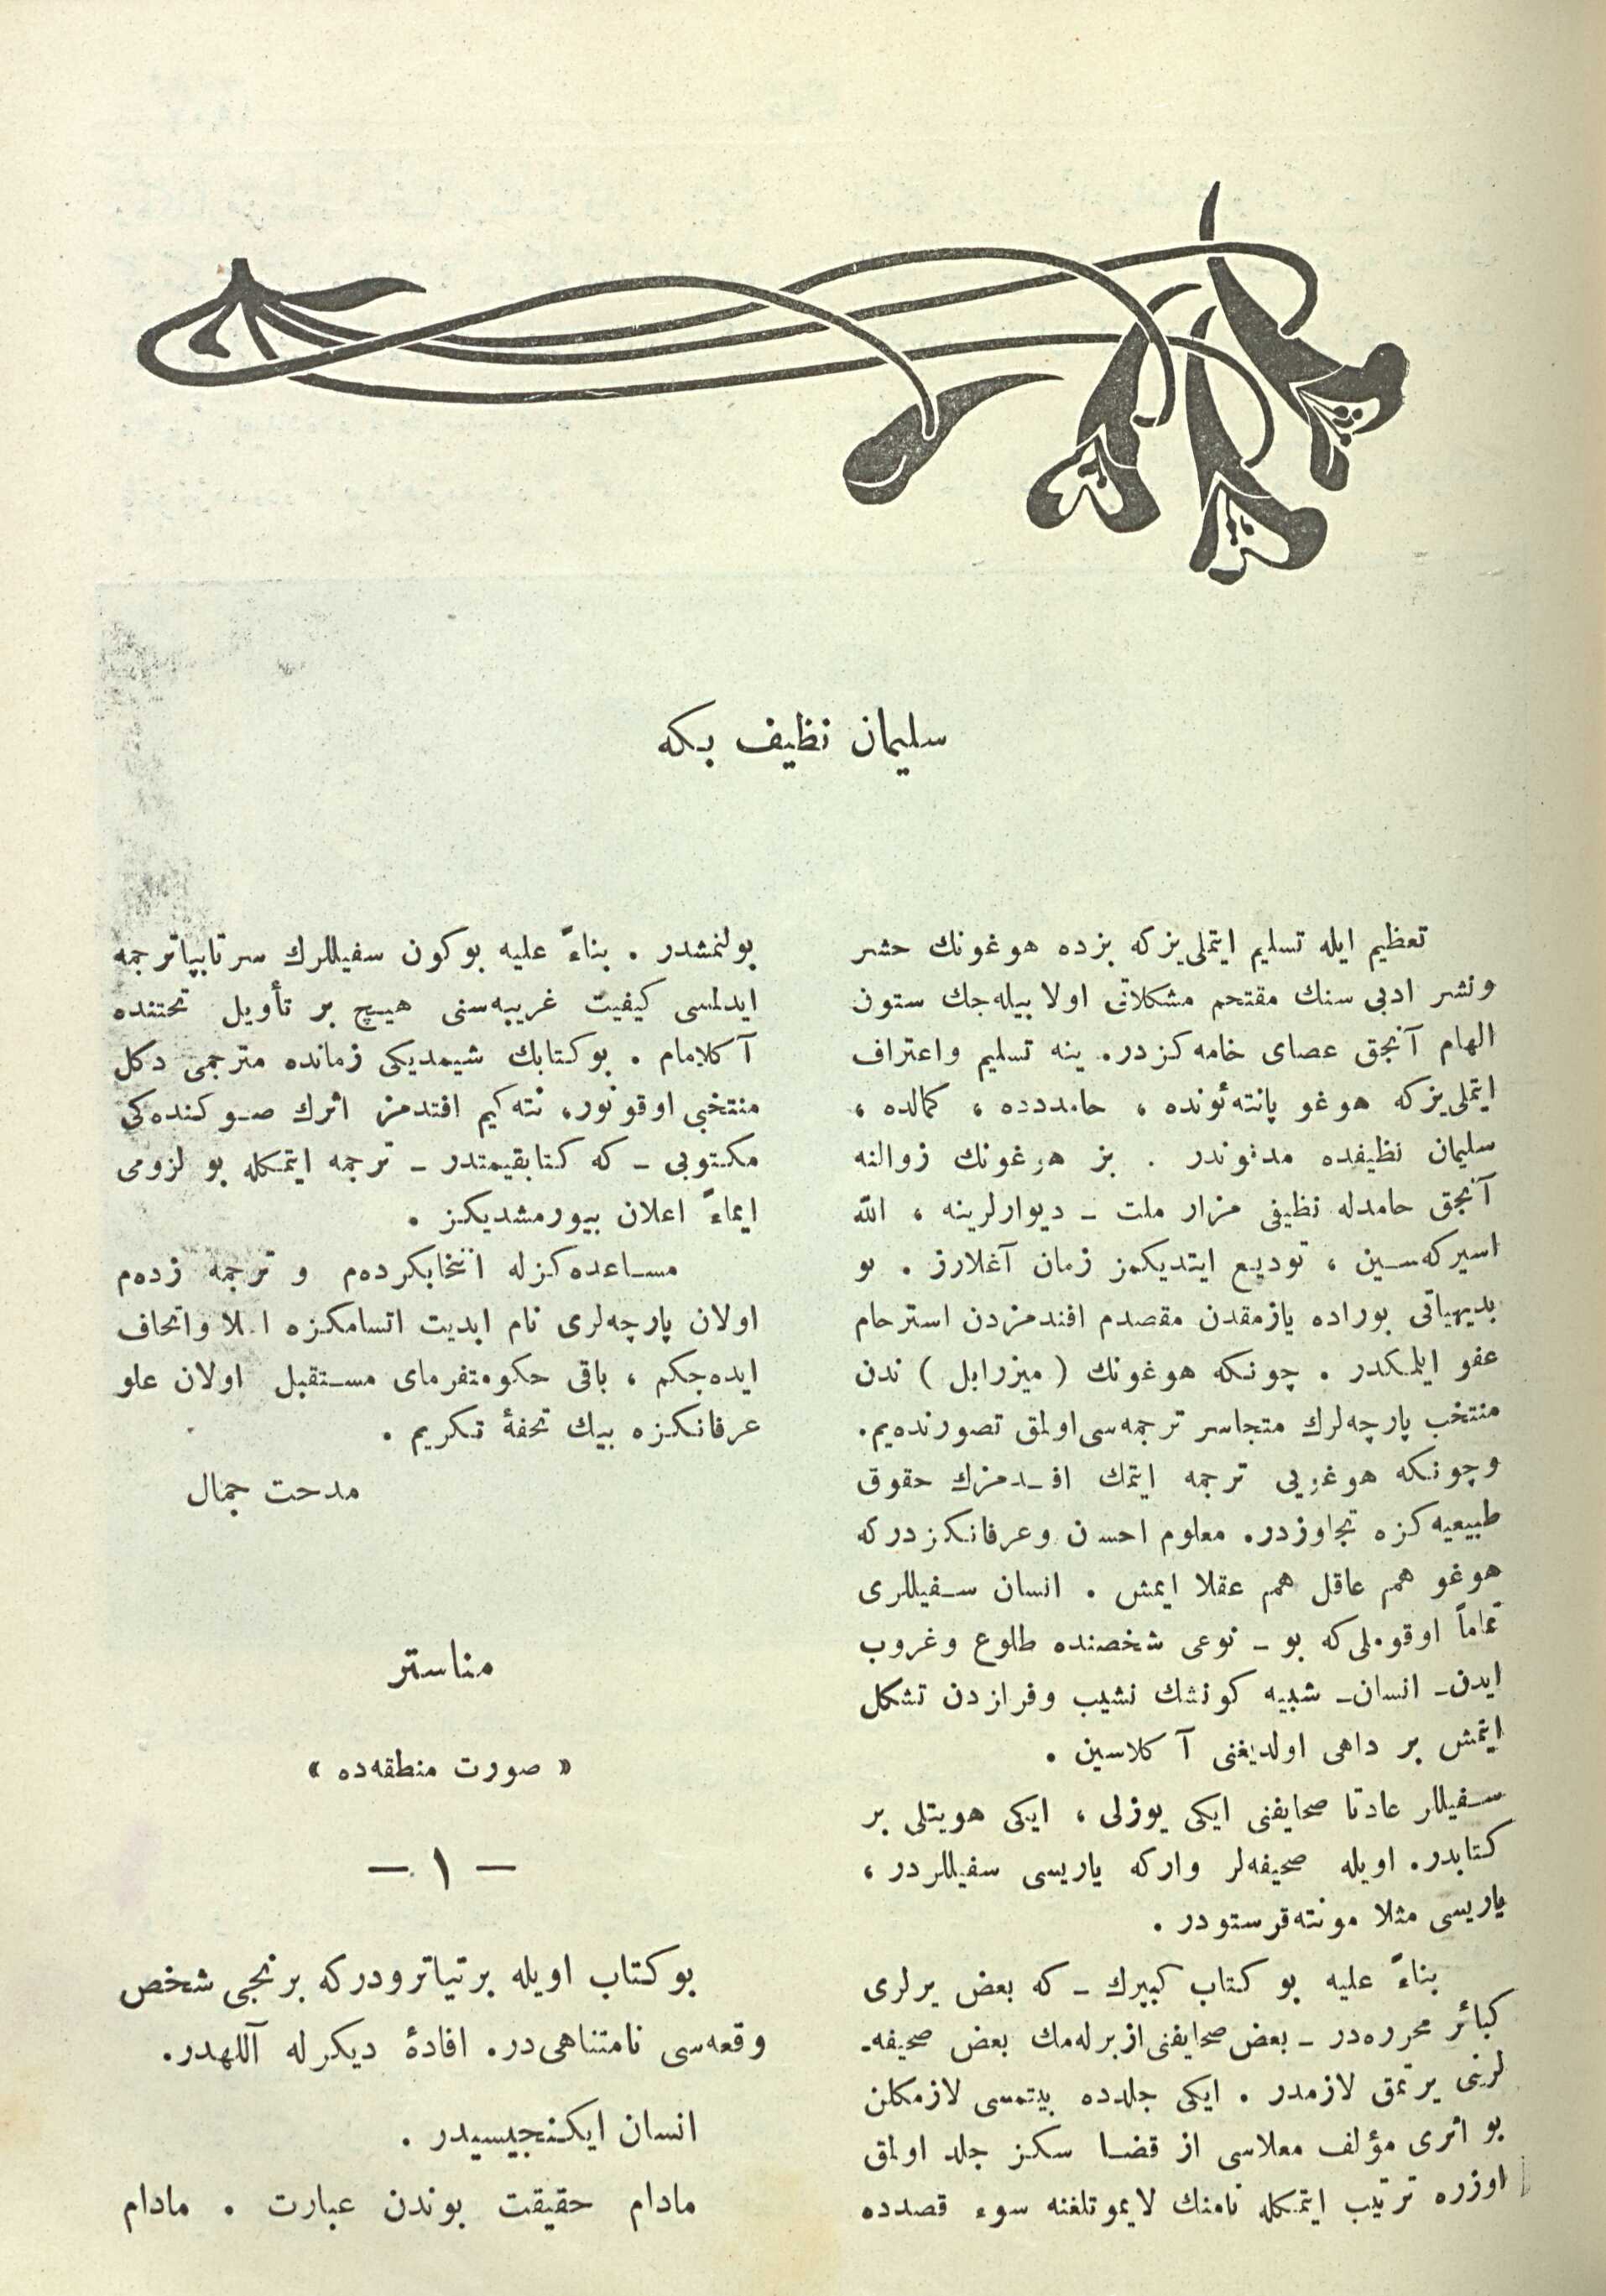 سلیمان نظیف بكه
تعظیم ایله تسلیم ایتملی‌یز كه بزده هوغونك حشر
ونشر ادبی سنك مقتحم مشكلاتی اولا بیله‌جك ستون
الهام آنجق عصای خامه كزدر. ینه تسلیم واعتراف
ایتملی‌یز كه هوغو پانته‌ئونده ، حامددده ، كمالده ،
سلیمان نظیفده مدفوندر . بز هوغونك زوالنه
آنجق حامدله نظیفی مزار ملت ـ دیوارلرینه ، الله
اسیركه‌سین ، تودیع ایتدیكمز زمان آغلارز . بو
بدیهیاتی بوراده یازمقدن مقصدم افندمزدن استرحام
عفو ایلمكدر . چونكه هوغونك ( میزرابل ) ندن
منتخب پارچه‌لرك متجاسر ترجمه‌سی اولمق تصورنده‌یم.
وچونكه هوغویی ترجمه ایتمك افندمزك حقوق
طبیعیه‌كزه تجاوزدر. معلوم احسن وعرفانكزدركه
هوغو هم عاقل هم عقلا ایمش . انسان سفیللری
تماماً اوقوملی كه بو ـ نوعی شخصنده طلوع وغروب
ایدن ـ انسان ـ شبیه كونشك نشیب وفرازدن تشكل
ایتمش بر داهی اولدیغنی آكلاسین .
سفیللر عادتا صحایفنی ایكی یوزلی ، ایكی هویتلی بر
كتابدر. اویله صحیفه‌لر واركه یاریسی سفیللردر ،
یاریسی مثلا مونته‌قرستودر .
بناءً علیه بو كتاب كبیرك ـ كه بعض یرلری
كبائر محرره‌در ـ بعض صحایفنی ازبرله‌مك بعض صحیفه‌ـ
لرینی یرتمق لازمدر . ایكی جلدده بیتمسی لازمكلن
بو اثری مؤلف معلاسی از قضا سكز جلد اولمق
اوزره ترتیب ایتمكله نامنك لایموتلغنه سوء قصدده
بولنمشدر . بناءً علیه بوكون سفیللرك سرتاپپا ترجمه
ایدلمسی كیفیت غریبه‌سنی هیچ بر تأویل تحتنده
آكلامام . بو كتابك شیمدیكی زمانده مترجمی دكل
منتخبی اوقونور، نته كیم افندمز اثرك صوكنده‌كی
مكتوبی ـ كه كتابقیمتدر ـ ترجمه ایتمكله بو لزومی
ایماءً اعلان بیورمشدیكز .
مساعده‌كزله انتخابكرده‌م و ترجمه زده‌م
اولان پارچه‌لری نام ابدیت اتسامكزه املا واتحاف
ایده‌جكم ، باقی حكومتفرمای مستقبل اولان علو
عرفانكزه بیك تحفهٔ تكریم .
مدحت جمال
مناستر
« صورت منطقه‌ده »
— ١ —
بو كتاب اویله بر تیاترودركه برنجی شخص
وقعه‌سی نامتناهی‌در. افادهٔ دیكرله آللهدر.
انسان ایكنجیسیدر .
مادام حقیقت بوندن عبارت . مادام